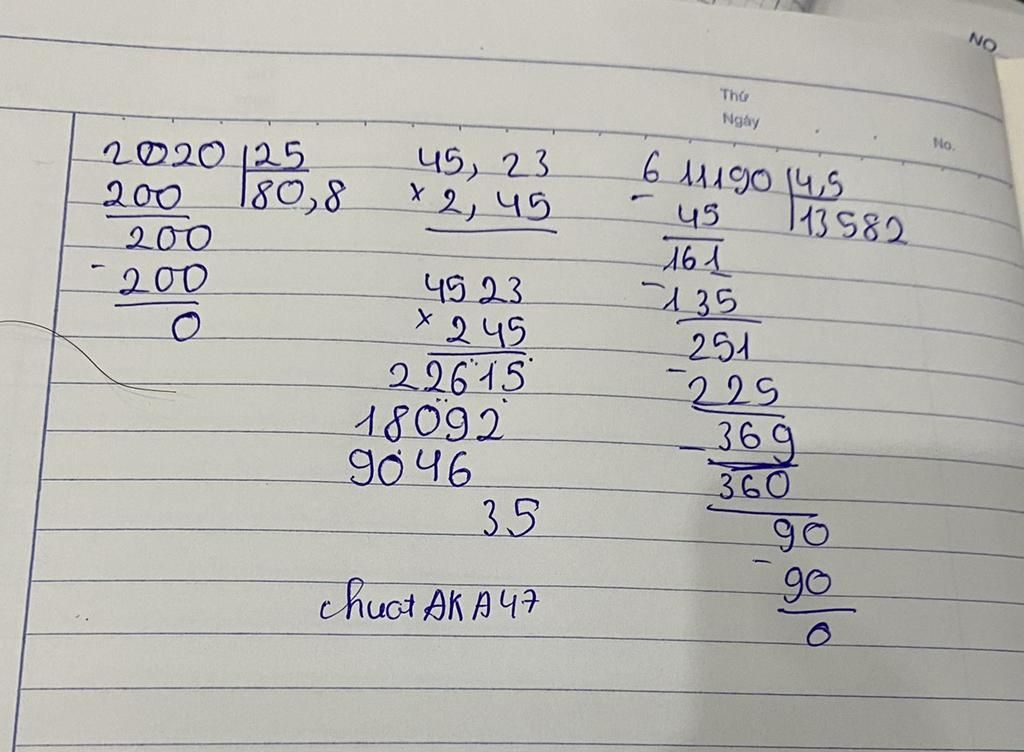 NO
Thứ
Ngày
No.
2020 25
200 80,8
200
- 200
0
45,23
× 2,45
4523
× 245
22615
18092
9046
35
611190 4,5
- 45 13582
161
- 135
251
- 225
- 369
360
90
- 90
0
chuot AKA47